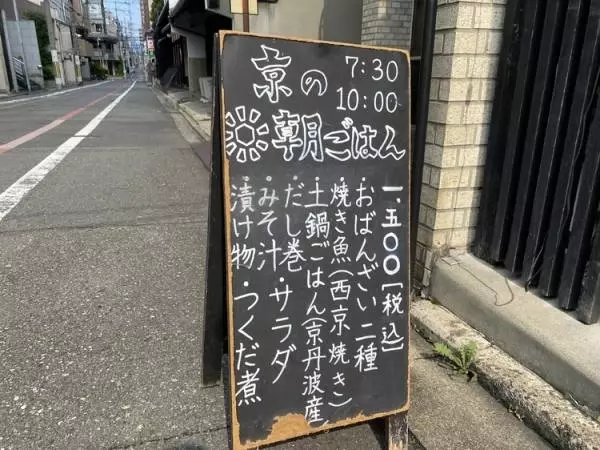 京の
7:30
10:00
朝ごはん
一、五〇〇［税込］
・おばんざい二種
・焼き魚(西京焼き)
・土鍋ごはん(京丹波産)
・だし巻・サラダ
・みそ汁
・漬け物・つくだ煮